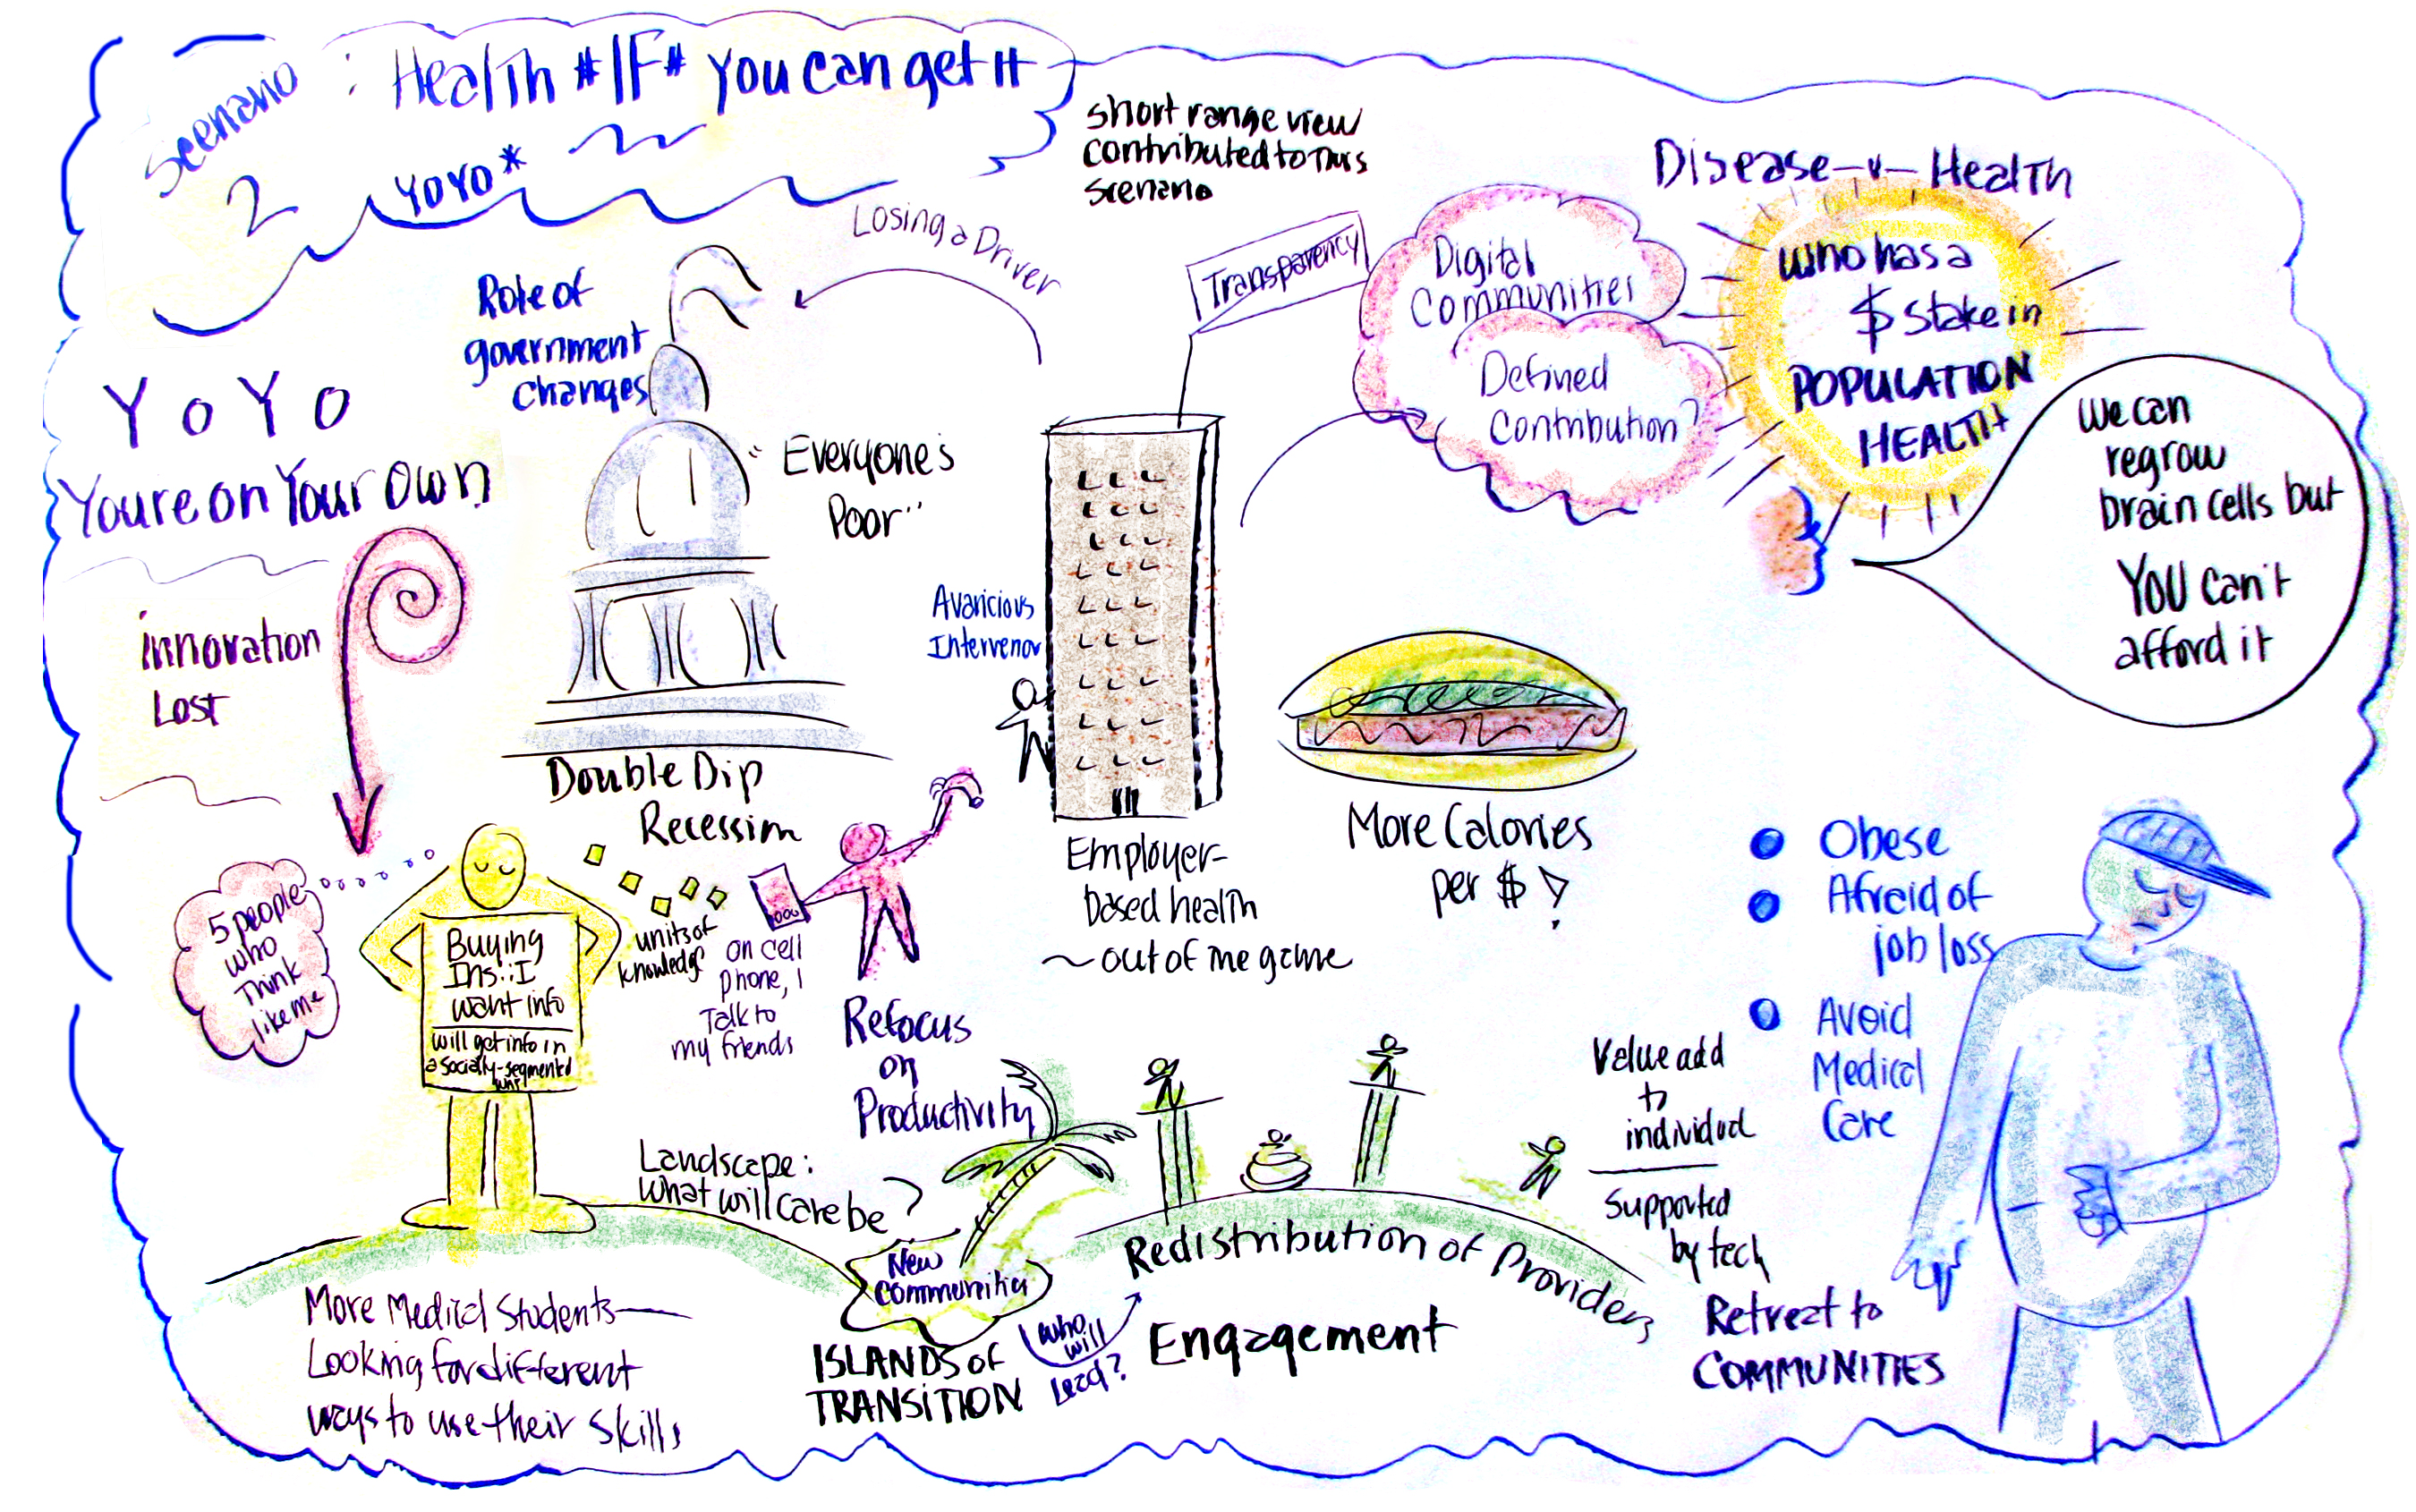 Scenario 2
: Health #IF# you can get it
YOYO*
short range view
contributed to this
scenario
Losing a Driver
Role of
government
changes
YoYo
Youre on Your Own
innovation
Lost
"Everyone's
Poor"
Transparency
Digital
Communities
Defined
Contribution?
Disease -v- Health
who has a
$ stake in
POPULATION
HEALTH
We can
regrow
brain cells but
YOU can't
afford it
Avaricious
Intervenor
Double Dip
Recession
Employer-
based health
~out of the game
More Calories
per $!
Obese
Afraid of
job loss
Avoid
Medical
Care
5 people
who
Think
like me
Buying
Ins.: I
want info
will get info in
a socially-segmented
units of
knowledge
on cell
phone, I
Talk to
my friends
Refocus
on
Productivity
Landscape:
what will care be?
New
Communities
ISLANDS of
TRANSITION
who
will
lead?
Redistribution of Providers
Engagement
Value add
to
individual
Supported
by tech
Retreat to
COMMUNITIES
More Medical Students—
Looking for different
ways to use their skills